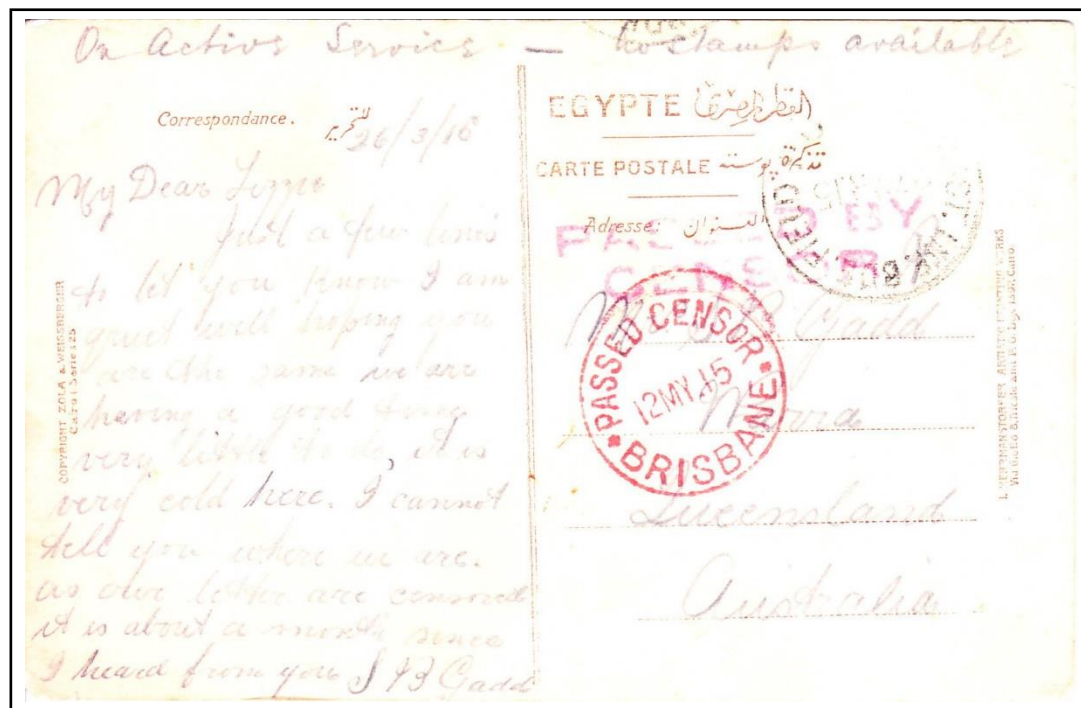 On Active Service — No stamps available
Correspondance.
26/3/15
My Dear Lizzie
Just a few lines
to let you know I am
quiet well hoping you
are the same we are
having a good time
very little to do it is
very cold here. I cannot
tell you where we are.
as our letter are censored
it is about a month since
I heard from you S B Gadd
COPYRIGHT ZOLA & WEISSBERGER
Cairo I Serie 125
EGYPTE القطر المصرى
CARTE POSTALE تذكرة بوسته
Adresse: العنوان
PASSED BY
CENSOR
Gadd
Queensland
Australia
PASSED CENSOR
12MY15
BRISBANE